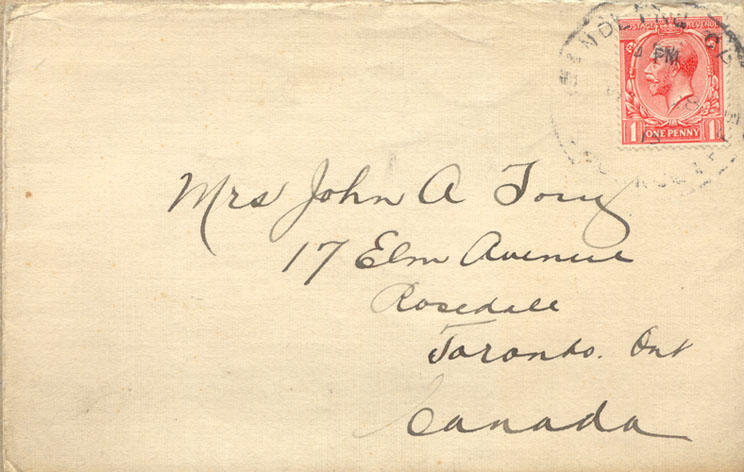 POSTAGE REVENUE
4 PM
1 ONE PENNY 1
Mrs John A Tory
17 Elm Avenue
Rosedale
Toronto. Ont
Canada